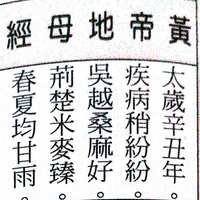 黃帝地母經
太歲辛丑年。
疾病稍紛紛。
吳越桑麻好。
荊楚米麥臻。
春夏均甘雨。